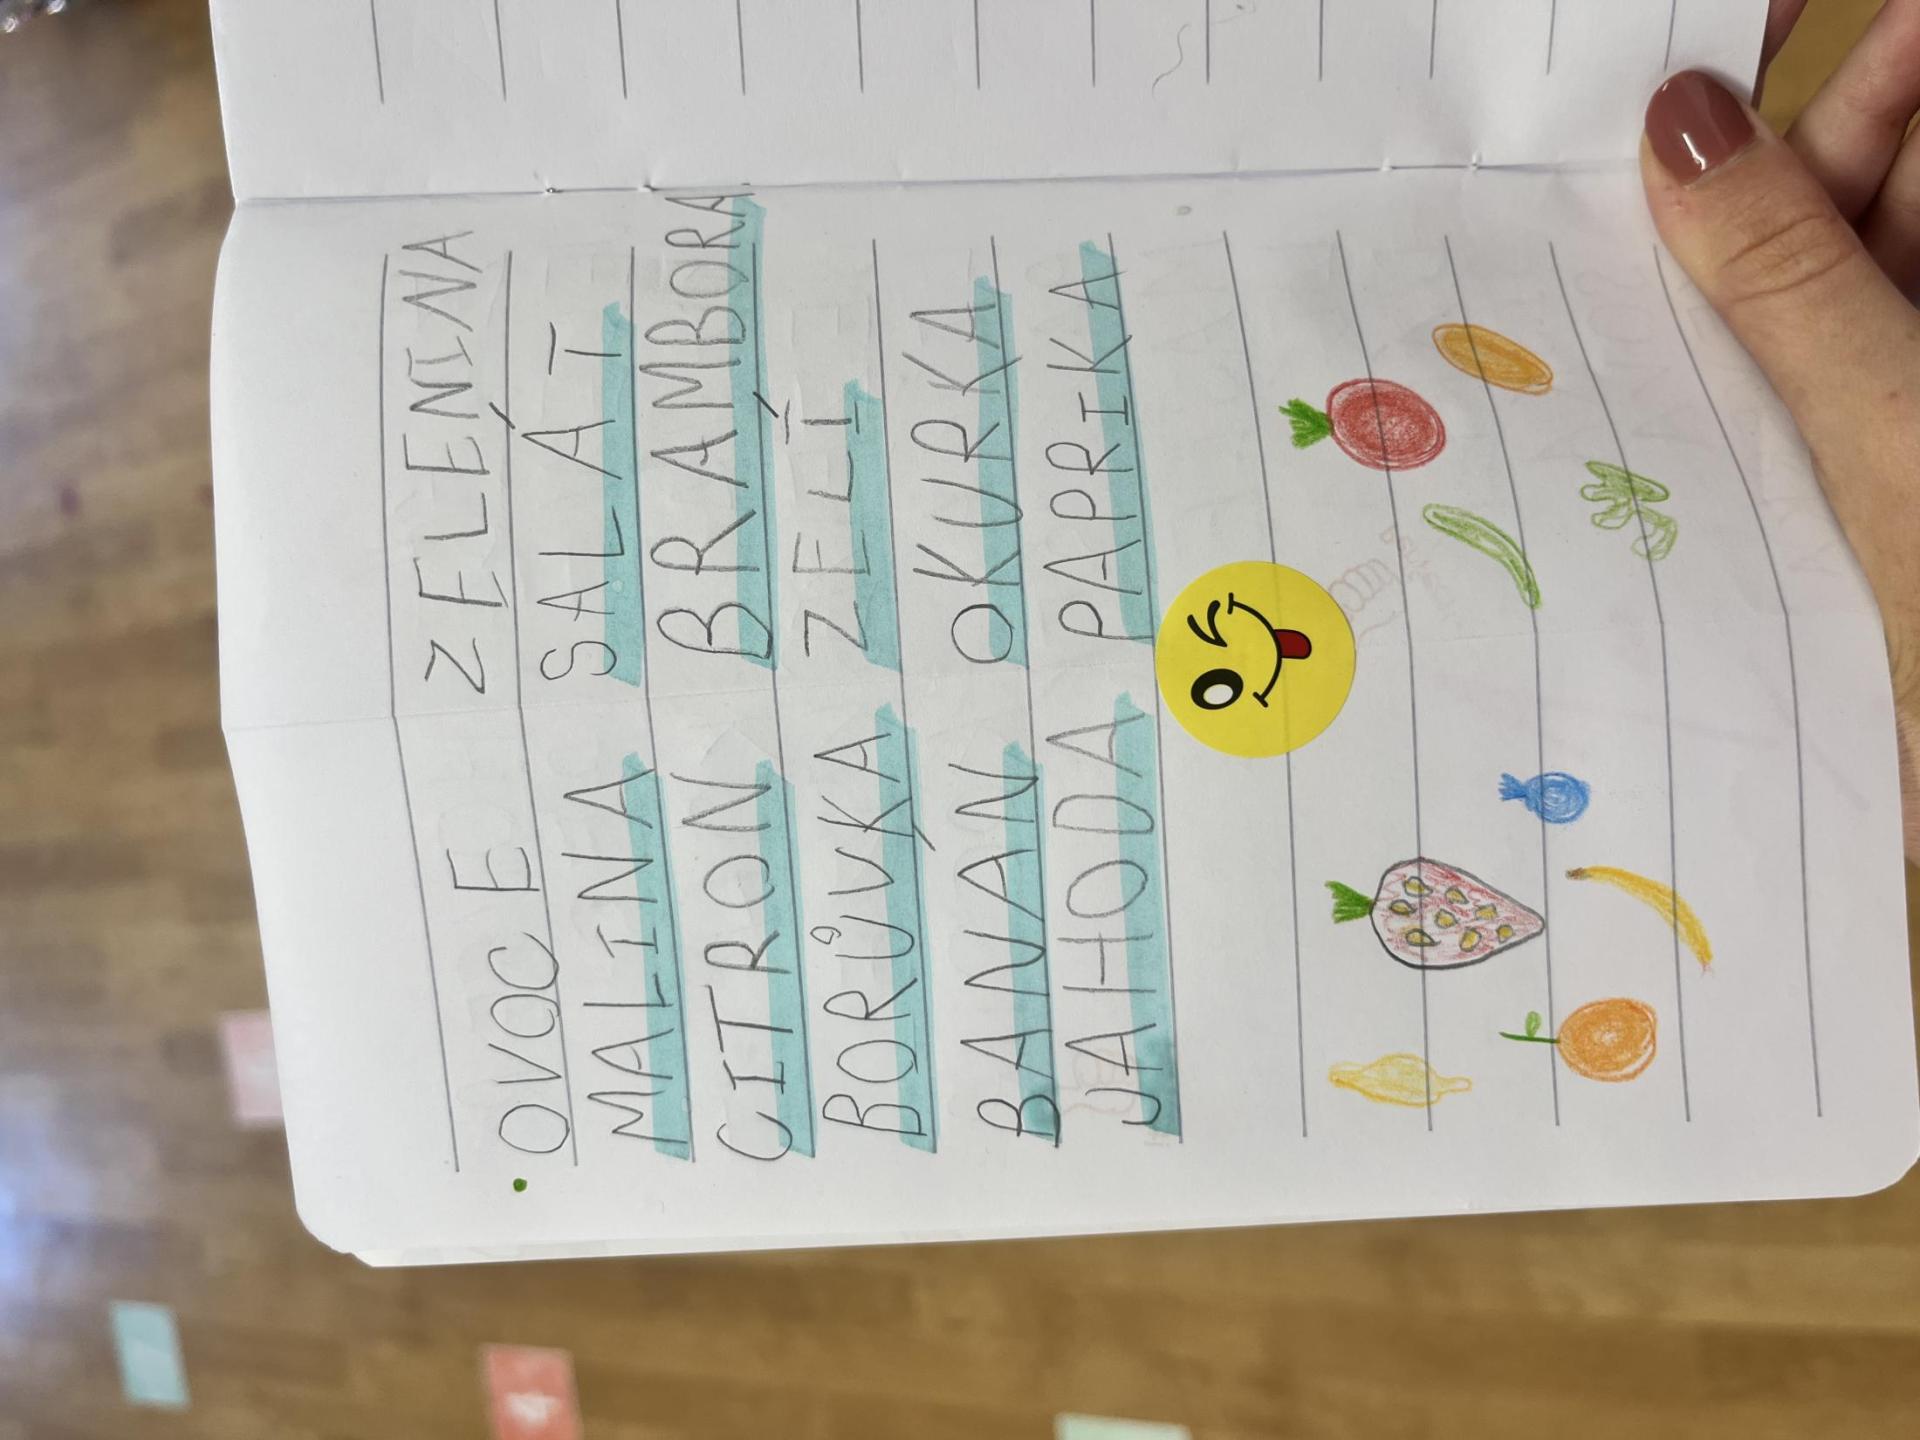 OVOCE ZELENINA
MALINA SALÁT
CITRON BRAMBORA
BORŮVKA ZELÍ
BANÁN OKURKA
JAHODA PAPRIKA
4